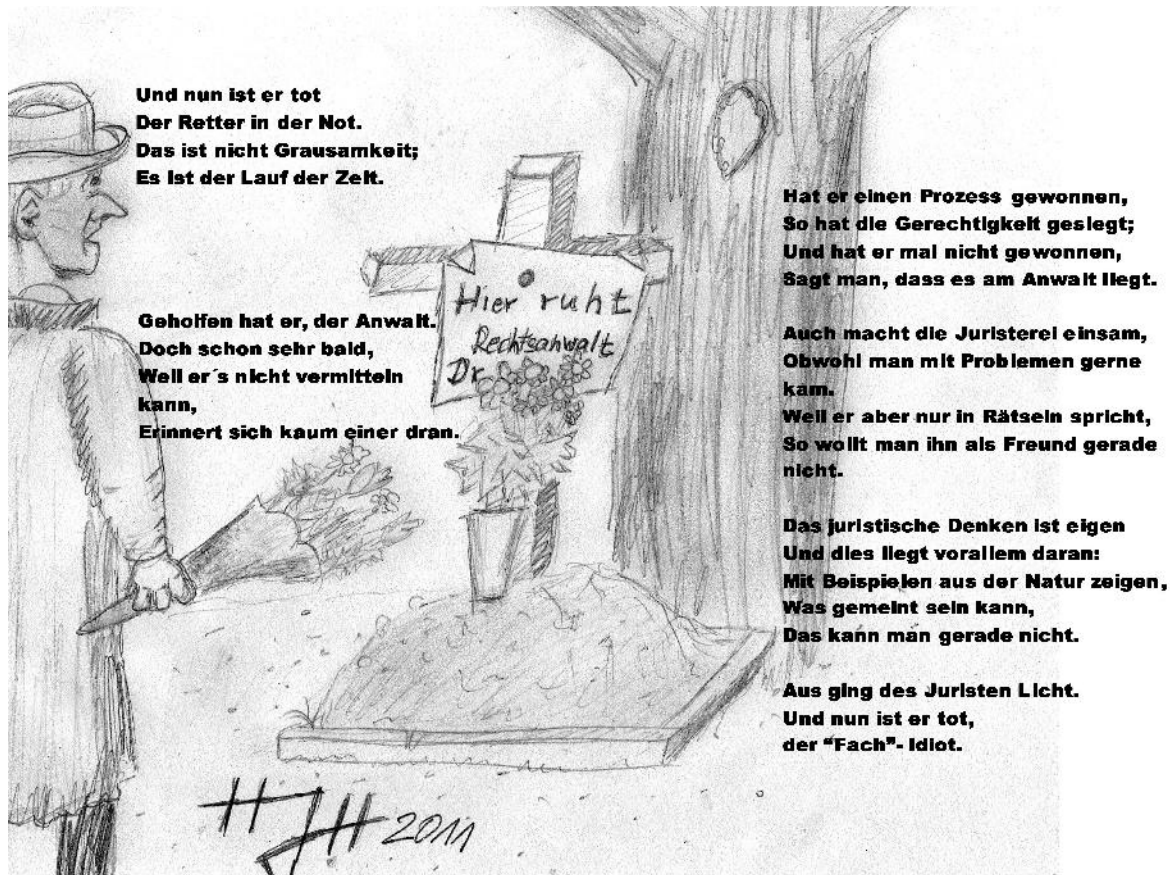 Und nun ist er tot
Der Retter in der Not.
Das ist nicht Grausamkeit;
Es ist der Lauf der Zeit.
Geholfen hat er, der Anwalt.
Doch schon sehr bald,
Weil er´s nicht vermitteln
kann,
Erinnert sich kaum einer dran.
Hier ruht
Rechtsanwalt
Dr
Hat er einen Prozess gewonnen,
So hat die Gerechtigkeit gesiegt;
Und hat er mal nicht gewonnen,
Sagt man, dass es am Anwalt liegt.
Auch macht die Juristerei einsam,
Obwohl man mit Problemen gerne
kam.
Weil er aber nur in Rätseln spricht,
So wollt man ihn als Freund gerade
nicht.
Das juristische Denken ist eigen
Und dies liegt vorallem daran:
Mit Beispielen aus der Natur zeigen,
Was gemeint sein kann,
Das kann man gerade nicht.
Aus ging des Juristen Licht.
Und nun ist er tot,
der “Fach”- Idiot.
HJH 2011